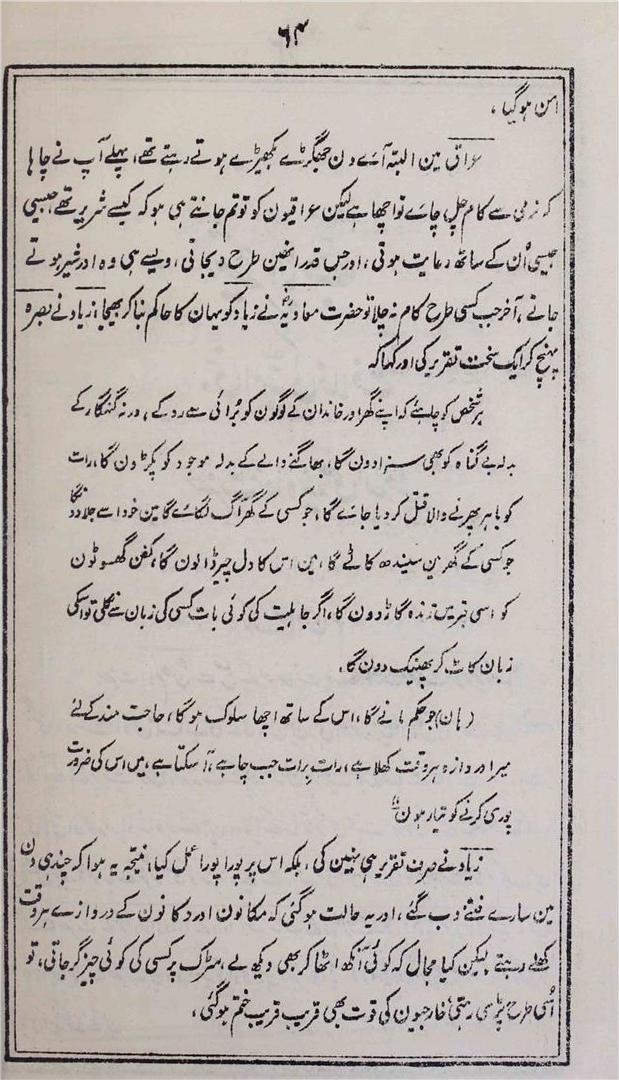 ۶۴
امن ہوگیا ،
عراق مین البتہ آئے دن جھگڑے بکھیڑے ہوتے رہتے تھے، پہلے آپ نے چاہا
کہ نرمی سے کام چل جائے تو اچھا ہے لیکن عراقیون کو تو تم جانتے ہی ہو کہ کیسے شریر تھے جیسی
جیسی اُن کے ساتھ رعایت ہوتی، اور جس قدر انھین طرح دیجاتی، ویسے ہی وہ اور شیر ہوتے
جاتے، آخر جب کسی طرح کام نہ چلا تو حضرت معاویہؓ نے زیاد کو یہان کا حاکم بنا کر بھیجا، زیاد نے بصرہ
پہنچ کر ایک سخت تقریر کی اور کہا کہ
ہر شخص کو چاہئے کہ اپنے گھر اور خاندان کے لوگون کو بُرائی سے روکے، ورنہ گنہگار کے
بدلہ بے گناہ کو بھی سزا دون گا، بھاگنے والے کے بدلہ موجود کو پکڑون گا، رات
کو باہر پھرنے والا قتل کر دیا جائے گا، جو کسی کے گھر آگ لگائے گا مین خود اسے جلا دونگا
جو کسی کے گھر مین سیندھ کاٹے گا، مین اس کا دل چیر ڈالون گا، کفن گھسوٹون
کو اسی قبر مین زندہ گاڑ دون گا، اگر جاہلیت کی کوئی بات کسی کی زبان سے نکلی تو اسکی
زبان کاٹ کر پھینک دون گا،
(ہان) جو حکم مانے گا، اس کے ساتھ اچھا سلوک ہوگا، حاجت مند کے لئے
میرا دروازہ ہر وقت کھلا ہے، رات برات جب چاہے، آسکتا ہے، میں اس کی ضرورت
پوری کرنے کو تیار ہون"
زیاد نے صرف تقریر ہی نہین کی، بلکہ اس پر پورا پورا عمل کیا، نتیجہ یہ ہوا کہ چند ہی دن
مین سارے فتنے دب گئے، اور یہ حالت ہوگئی کہ مکانون اور دکانون کے دروازے ہر وقت
کھلے رہتے لیکن کیا مجال کہ کوئی آنکھ اٹھا کر بھی دیکھ لے، سڑک پر کسی کی کوئی چیز گر جاتی، تو
اُسی طرح پڑی رہتی، خارجیون کی قوت بھی قریب قریب ختم ہوگئی،